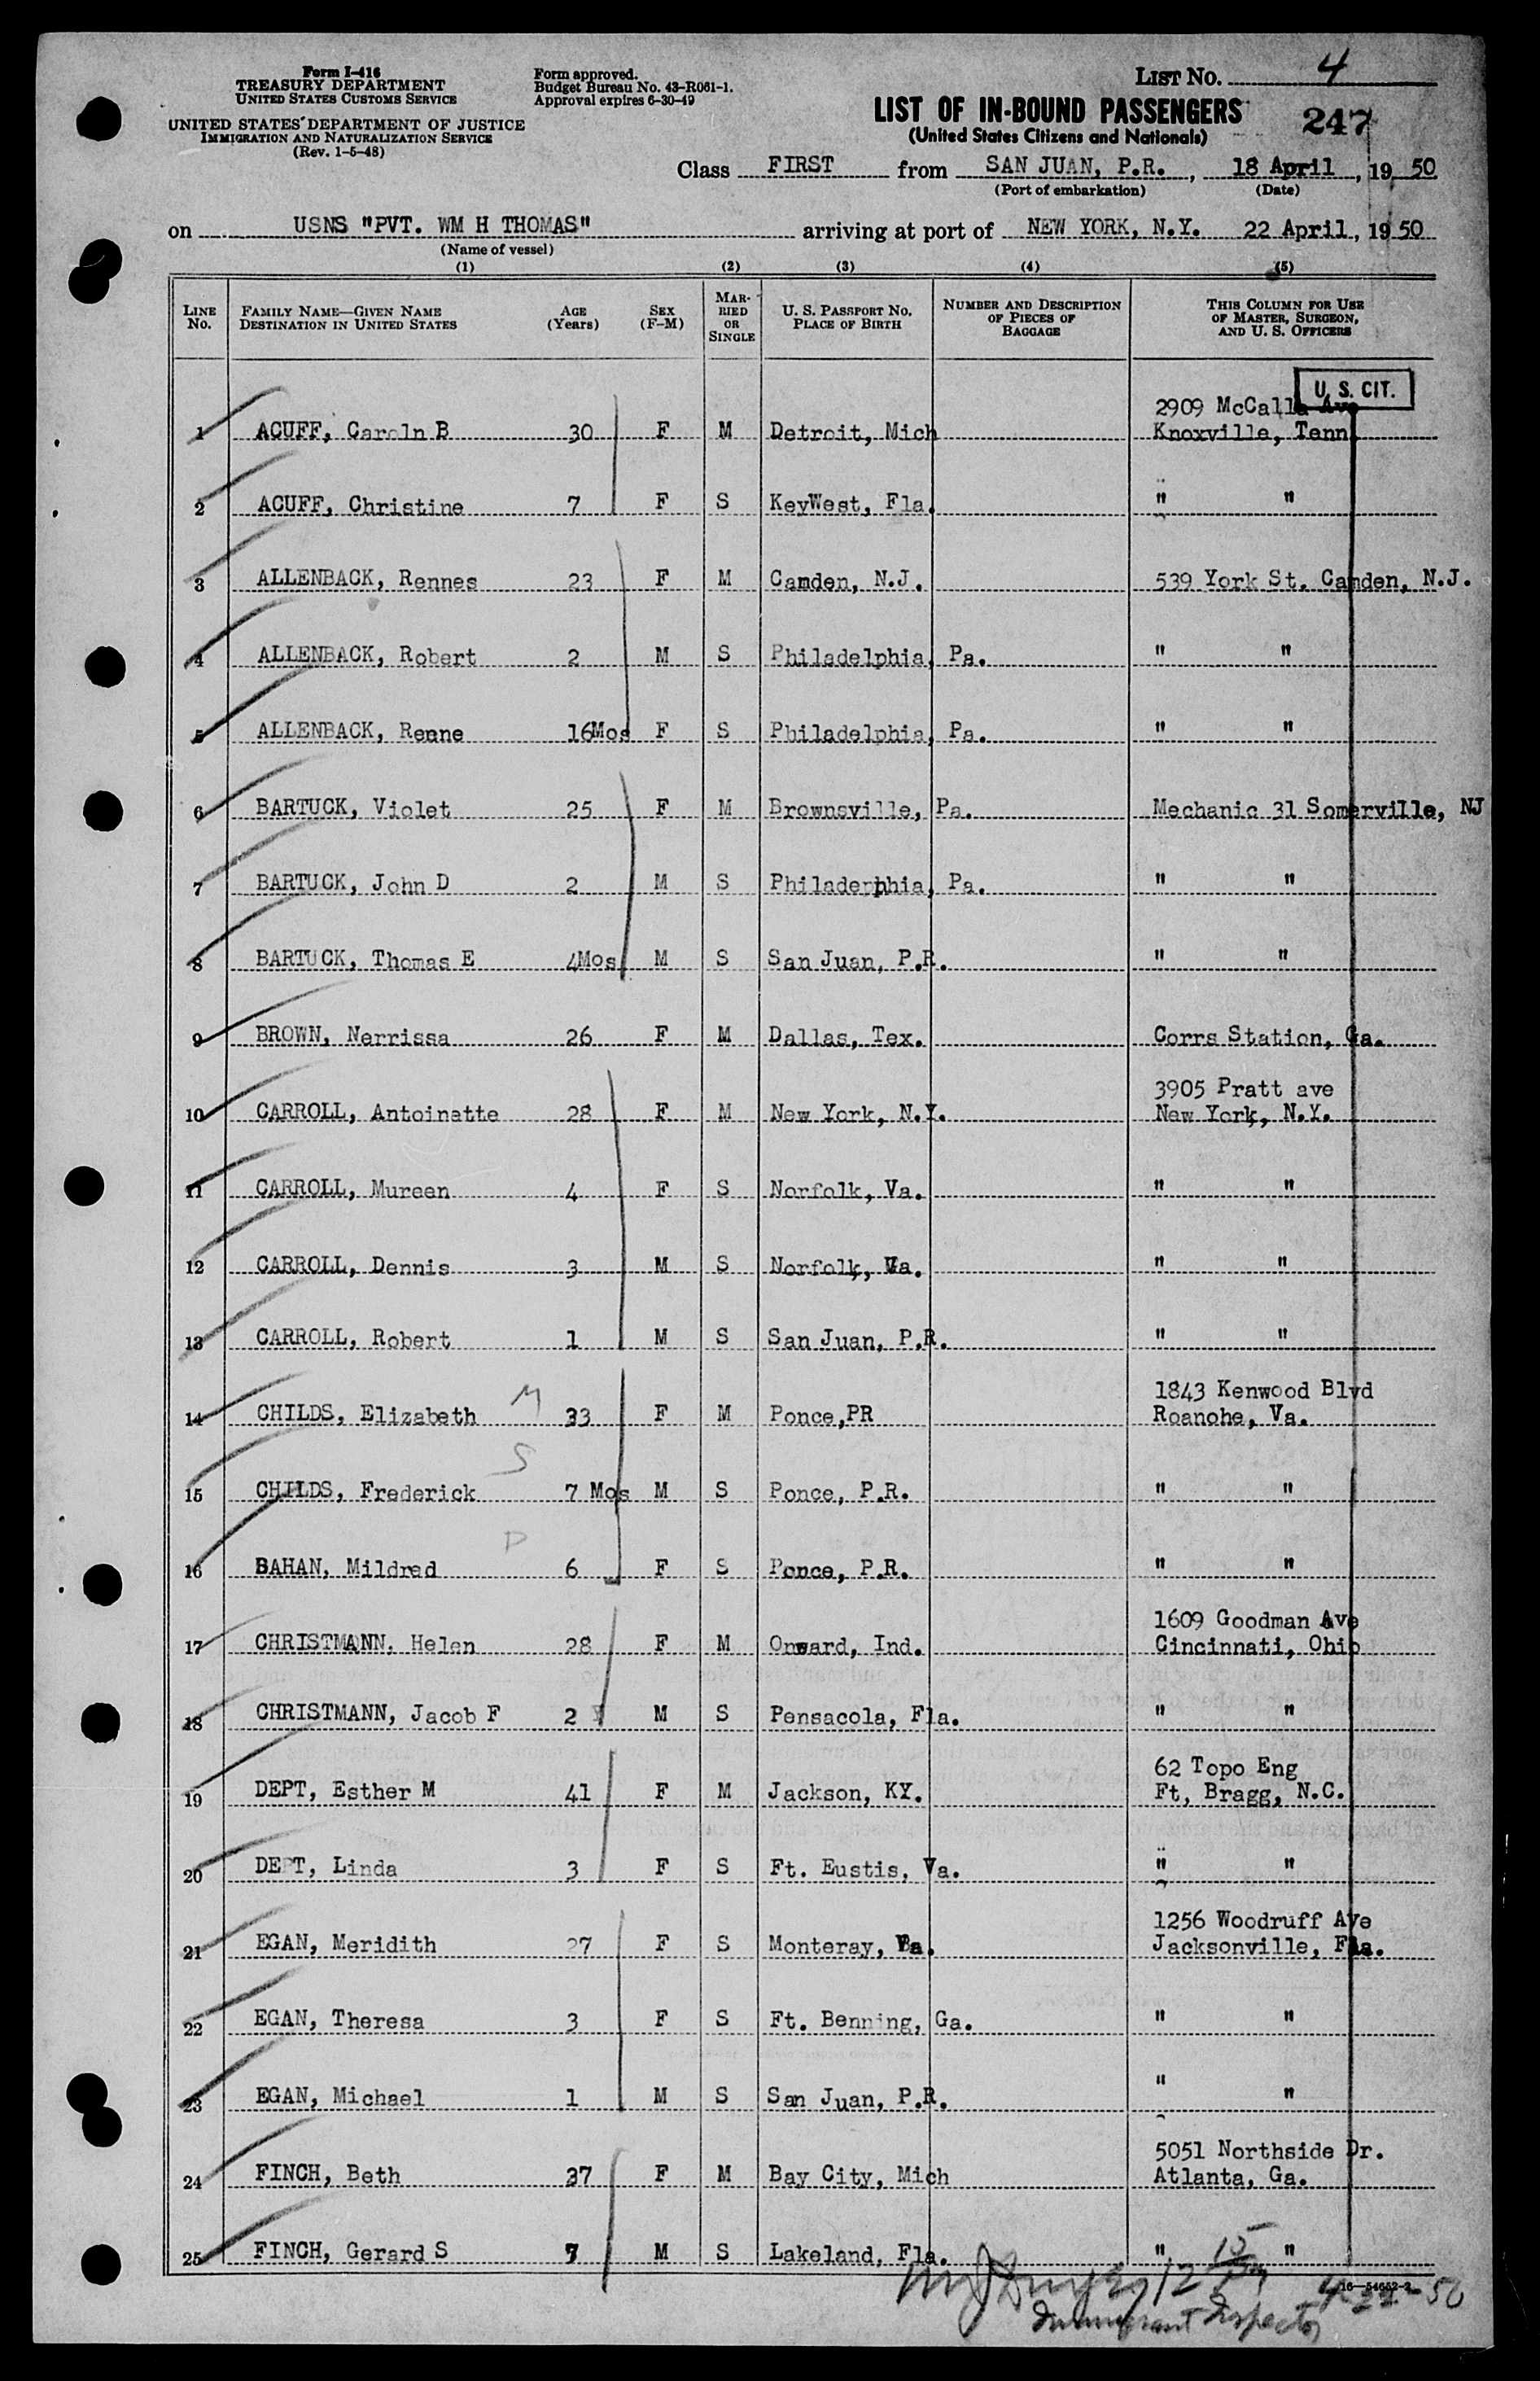 Form I-416
TREASURY DEPARTMENT
UNITED STATES CUSTOMS SERVICE
UNITED STATES DEPARTMENT OF JUSTICE
IMMIGRATION AND NATURALIZATION SERVICE
(Rev. 1-5-48)
Form approved.
Budget Bureau No. 43-R061-1.
Approval expires 6-30-49
LIST NO. 4
LIST OF IN-BOUND PASSENGERS
(United States Citizens and Nationals)
247
Class FIRST from SAN JUAN, P.R., 18 April, 19 50
(Port of embarkation) (Date)
on USNS "PVT. WM H THOMAS" arriving at port of NEW YORK, N.Y. 22 April, 19 50
(Name of vessel)
(1) (2) (3) (4) (5)
LINE NO. FAMILY NAME—GIVEN NAME DESTINATION IN UNITED STATES AGE (Years) SEX (F-M) MARRIED OR SINGLE U. S. PASSPORT NO. PLACE OF BIRTH NUMBER AND DESCRIPTION OF PIECES OF BAGGAGE THIS COLUMN FOR USE OF MASTER, SURGEON, AND U. S. OFFICERS
U. S. CIT.
2909 McCalla Ave
1 ACUFF, Caroln B 30 F M Detroit, Mich Knoxville, Tenn
2 ACUFF, Christine 7 F S KeyWest, Fla. " "
3 ALLENBACK, Rennes 23 F M Camden, N.J. 539 York St. Camden, N.J.
4 ALLENBACK, Robert 2 M S Philadelphia, Pa. " "
5 ALLENBACK, Renne 16Mos F S Philadelphia, Pa. " "
6 BARTUCK, Violet 25 F M Brownsville, Pa. Mechanic 31 Somerville, NJ
7 BARTUCK, John D 2 M S Philaderphia, Pa. " "
8 BARTUCK, Thomas E 4Mos M S San Juan, P.R. " "
9 BROWN, Nerrissa 26 F M Dallas, Tex. Corrs Station, Ga.
3905 Pratt ave
10 CARROLL, Antoinatte 28 F M New York, N.Y. New York, N.Y.
11 CARROLL, Mureen 4 F S Norfolk, Va. " "
12 CARROLL, Dennis 3 M S Norfolk, Va. " "
13 CARROLL, Robert 1 M S San Juan, P.R. " "
1843 Kenwood Blvd
14 CHILDS, Elizabeth M 33 F M Ponce,PR Roanohe, Va.
15 CHILDS, Frederick S 7 Mos M S Ponce, P.R. " "
16 BAHAN, Mildred P 6 F S Ponce, P.R. " "
1609 Goodman Ave
17 CHRISTMANN, Helen 28 F M Onward, Ind. Cincinnati, Ohio
18 CHRISTMANN, Jacob F 2 M S Pensacola, Fla. " "
62 Topo Eng
19 DEPT, Esther M 41 F M Jackson, KY. Ft, Bragg, N.C.
20 DEPT, Linda 3 F S Ft. Eustis, Va. " "
1256 Woodruff Ave
21 EGAN, Meridith 27 F S Monteray, Jacksonville, Fla.
22 EGAN, Theresa 3 F S Ft. Benning, Ga. " "
23 EGAN, Michael 1 M S San Juan, P.R. " "
5051 Northside Dr.
24 FINCH, Beth 37 F M Bay City, Mich Atlanta, Ga.
25 FINCH, Gerard S 7 M S Lakeland, Fla. " "
16—54652-2
4-22-50
Immigrant Inspector